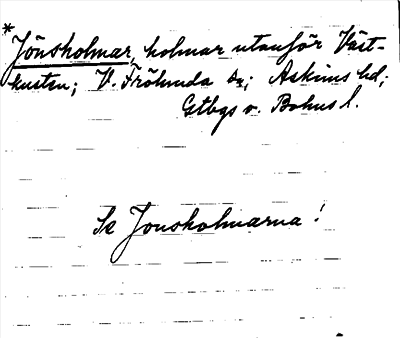 *
Jönsholmar, holmar utanför Väst-
kusten; V. Frölunda sn; Askims hd;
Gtbgs o. Bohus l.
Se Jonsholmarna!